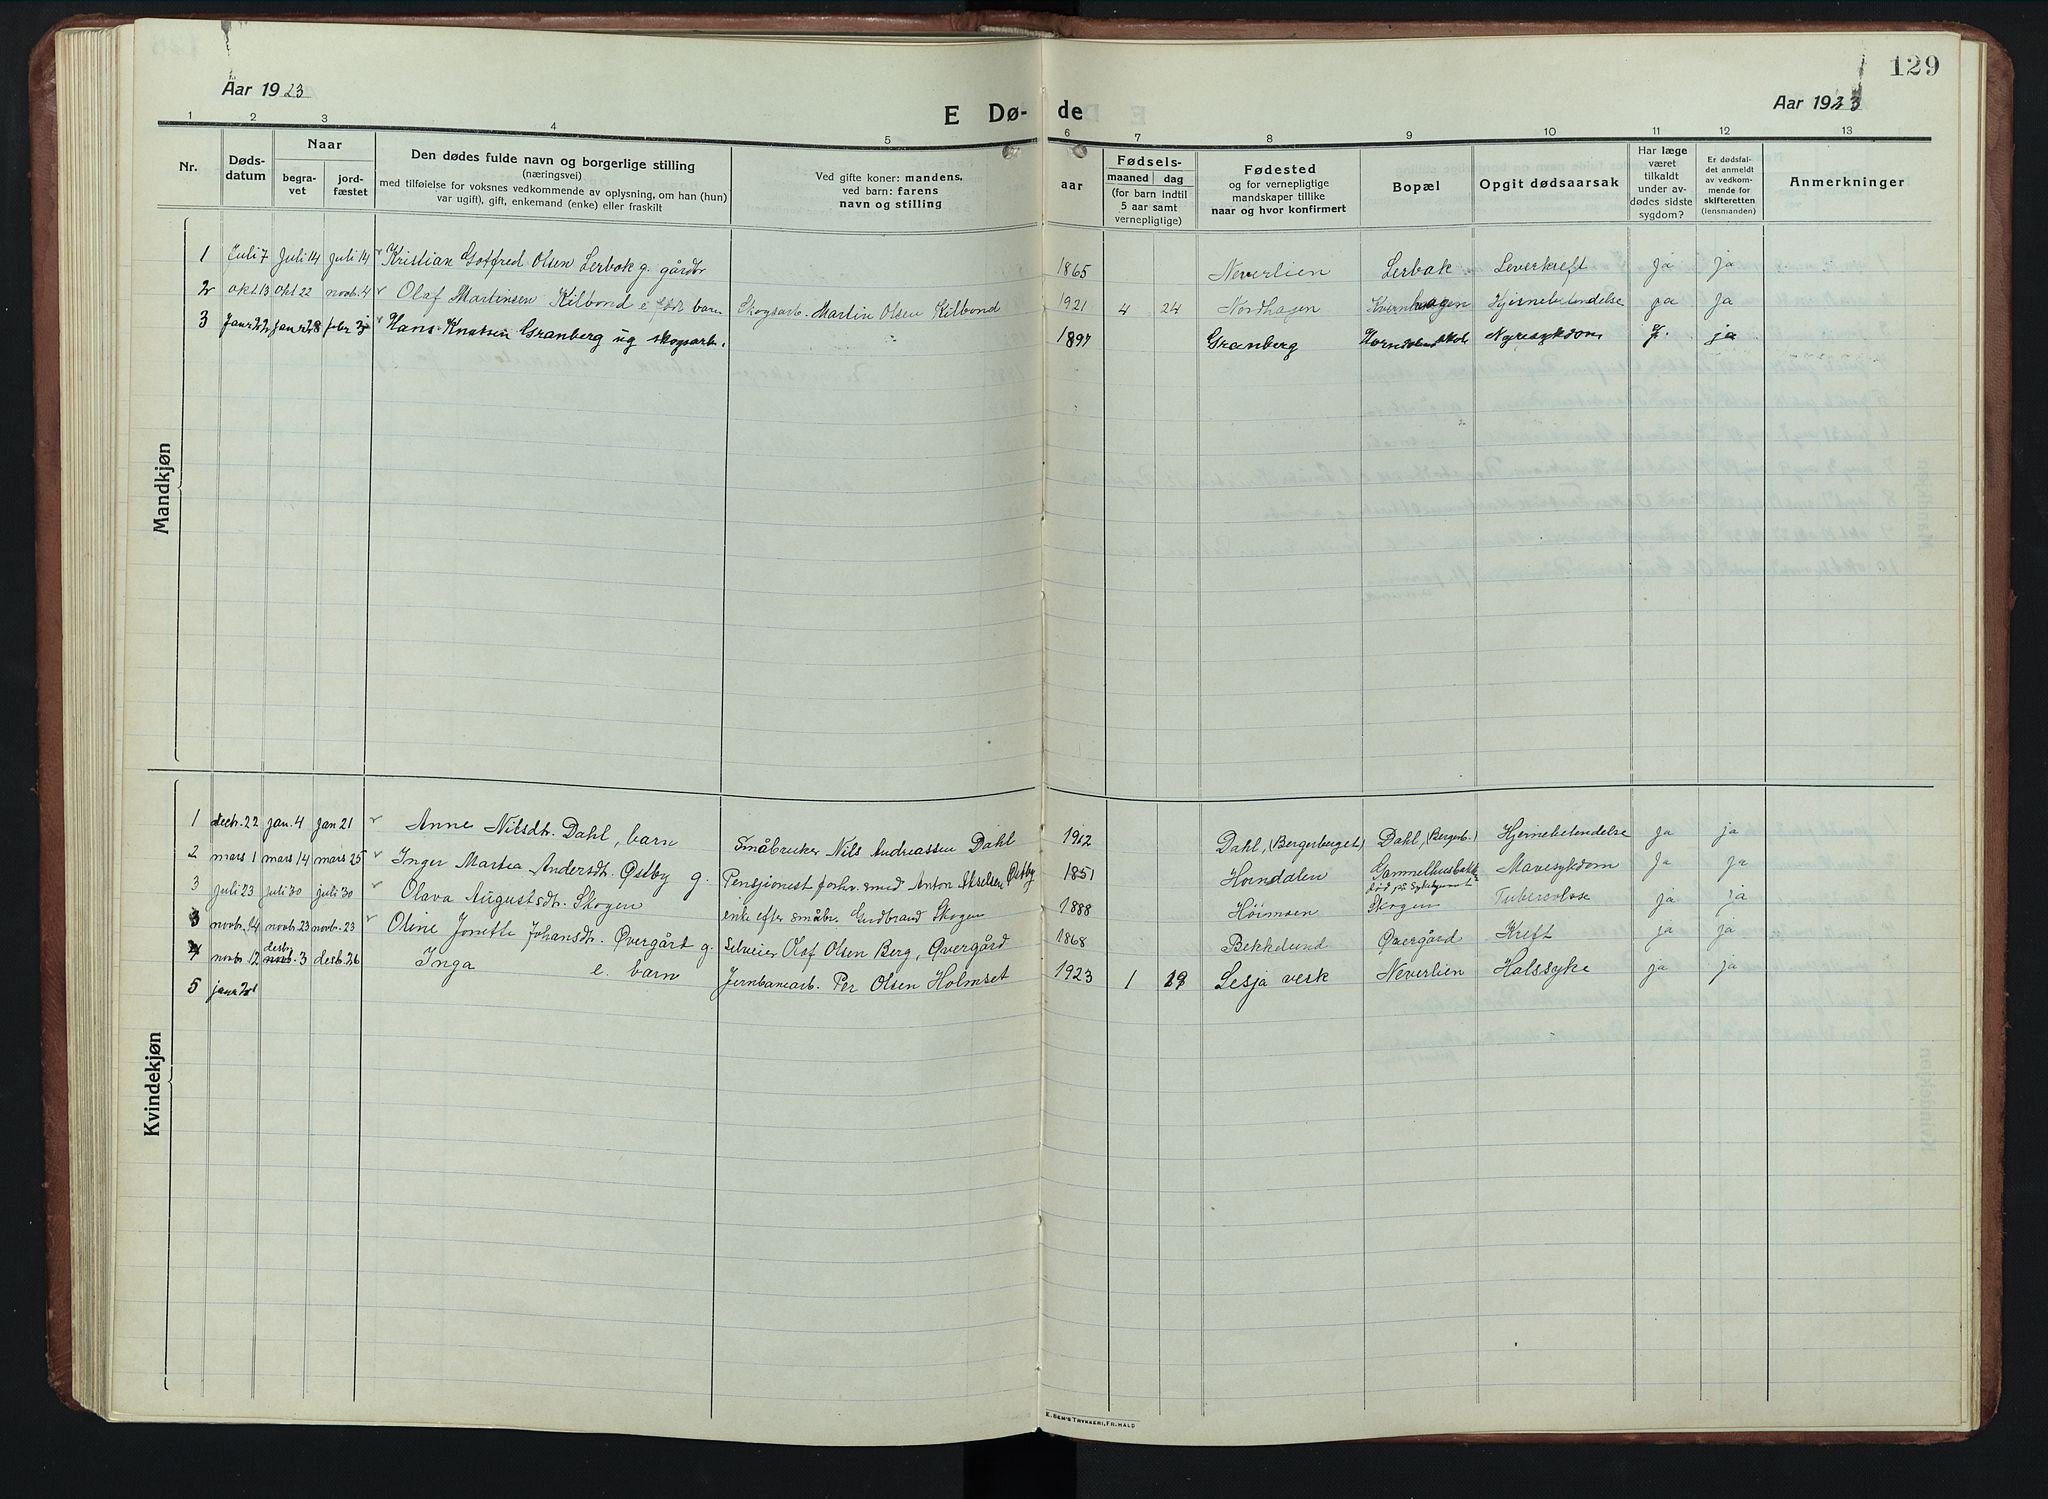 129
Aar 1923
Aar 1923
E Dø- de
1 2 3 4 5 6 7 8 9 10 11 12 13
Nr.
Døds-
datum
Naar
begra-
vet
jord-
fæstet
Den dødes fulde navn og borgerlige stilling
(næringsvei)
med tilføielse for voksnes vedkommende av oplysning, om han (hun)
var ugift), gift, enkemand (enke) eller fraskilt
Ved gifte koner: mandens,
ved barn: farens
navn og stilling
aar
Fødsels-
maaned dag
(for barn indtil
5 aar samt
vernepligtige)
Fødested
og for vernepligtige
mandskaper tillike
naar og hvor konfirmert
Bopæl
Opgit dødsaarsak
Har læge
været
tilkaldt
under av-
dødes sidste
sygdom?
Er dødsfal-
det anmeldt
av vedkom-
mende for
skifteretten
(lensmanden)
Anmerkninger
Mandkjøn
1 Juli 7 Juli 14 juli 14 Kristian Gotfred Olsen Lerbak g. gårdbr 1865 Neverlien Lerbak Leverkreft ja ja
2 okt 13 okt 22 novb. 4 Olaf Martinsen Kilbond e født barn Skogsarb. Martin Olsen Kilbond 1921 4 24 Nordhagen Kvernhagen Hjernebetendelse ja ja
3 Janr 22 janr 28 febr Hans Knutsen Granberg ug skogsarb. 1897 Granberg Nyresykdom ja
Kvindekjøn
1 decbr. 22 jan. 4 jan 21 Anne Nilsdtr. Dahl, barn Småbruker Nils Andreassen Dahl 1912 Dahl, (Bergerberget) Dahl, (Bergerb.) Hjernebetendelse ja ja
2 mars 1 mars 14 mars 25 Inger Martea Andersdt. Østby g. Pensjonest forhv. smed Anton Akselsen Østby 1851 Horndalen Gammelhusbakk Mavesykdom ja ja
død på Sykehjemmet
3 juli 23 juli 30 juli 30 Olava Augustsdtr. Skogen enke efter småbr. Gudbrand Skogen 1888 Høimoen Skogen Tuberculose ja ja
3 novb. 14 novb. 23 novb. 23 Oline Jonette Johansdtr. Øvergård g. Selveier Olaf Olsen Berg, Øvergård 1868 Bekkelund Øvergård Kreft ja ja
desbr
4 novb. 12 novb. 3 desb. 26 Inga e. barn Jernbanearb. Per Olsen Holmset 1923 1 29 Lesja verk Neverlien Halssyke ja ja
5 janr 2
E. SEM'S TRYKKERI, FR.HALD